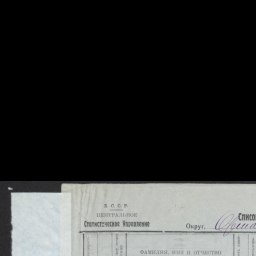 З.С.С.Р.
ЦЕНТРАЛЬНОЕ
Статистическое Управление
Списо
Округ.
ФАМИЛИЯ, ИМЯ И ОТЧЕСТВО